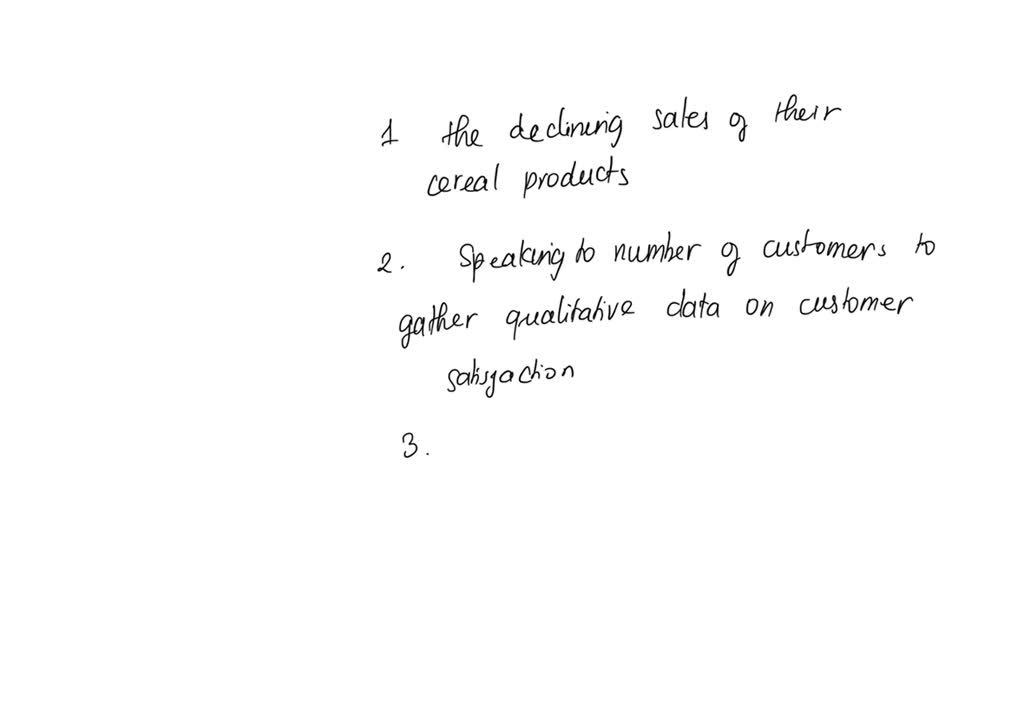 1 the declining sales of their
cereal products
2. Speaking to number of customers to
gather qualitative data on customer
satisfaction
3.